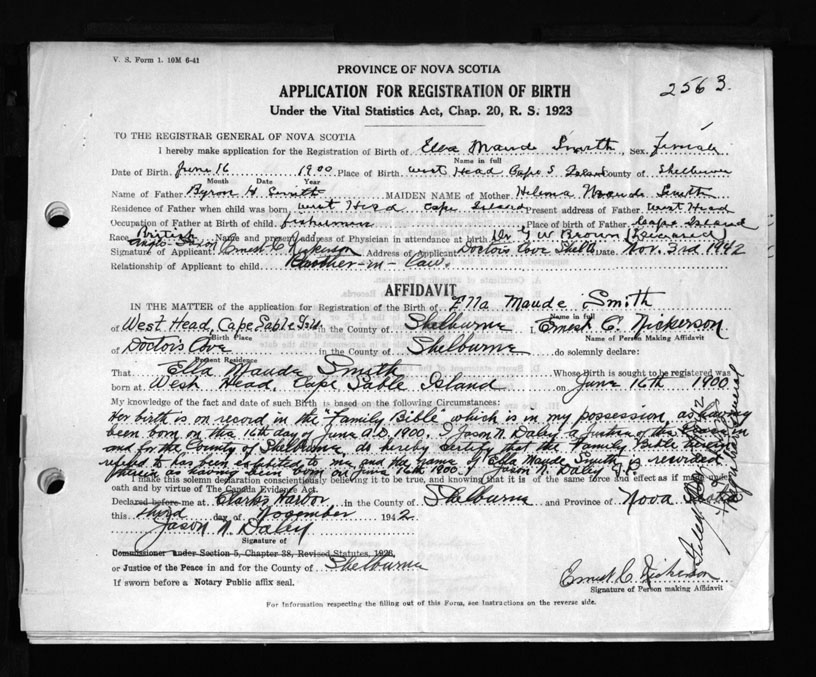 V. S. Form 1. 10M 6-41
PROVINCE OF NOVA SCOTIA
APPLICATION FOR REGISTRATION OF BIRTH
2563.
Under the Vital Statistics Act, Chap. 20, R. S. 1923
TO THE REGISTRAR GENERAL OF NOVA SCOTIA
I hereby make application for the Registration of Birth of Ella Maude Smith, Sex, Female
Name in full
Date of Birth. June 16 1900 Place of Birth. West Head Cape S Island County of Shelburne
Month Date Year
Name of Father Byron H Smith MAIDEN NAME of Mother Helena Maude Smith
Residence of Father when child was born West Head Cape Island Present address of Father West Head
Occupation of Father at Birth of child fisherman Place of birth of Father Cape Island
Race British Anglo Saxon Name and present address of Physician in attendance at birth Dr G W Brown (Deceased)
Signature of Applicant Ernest C. Nickerson Address of Applicant Doctors Cove Shelb Date Nov. 3rd 1942
Relationship of Applicant to child Brother-in-law.
AFFIDAVIT
IN THE MATTER of the application for Registration of the Birth of Ella Maude Smith
Name in full
of West Head, Cape Sable Isld. in the County of Shelburne I, Ernest C. Nickerson
Birth Place Name of Person Making Affidavit
of Doctors Cove in the County of Shelburne do solemnly declare:
Present Residence
That Ella Maude Smith Whose Birth is sought to be registered was
born at West Head, Cape Sable Island on June 16th 1900
My knowledge of the fact and date of such Birth is based on the following Circumstances:
Her birth is on record in the "Family Bible" which is in my possession, as having
been born on the 16th day of June A.D. 1900. I Jason N. Daley a Justice of the Peace in
and for the County of Shelburne, do hereby certify that the Family Bible herein
refered to has been exhibited to me and the name of Ella Maude Smith is recorded
therein as having been born on June 16th 1900. Jason N. Daley J.P.
I make this solemn declaration conscientiously believing it to be true, and knowing that it is of the same force and effect as if made under
oath and by virtue of The Canada Evidence Act.
Declared before me at Clarks Harbor in the County of Shelburne and Province of Nova Scotia
this third day of November 1942
Jason N. Daley
Signature of
Commissioner under Section 5, Chapter 38, Revised Statutes, 1923,
or Justice of the Peace in and for the County of Shelburne
If sworn before a Notary Public affix seal.
Ernest C. Nickerson
Signature of Person making Affidavit
For Information respecting the filling out of this Form, see Instructions on the reverse side.
Filed Nov
Registrar General